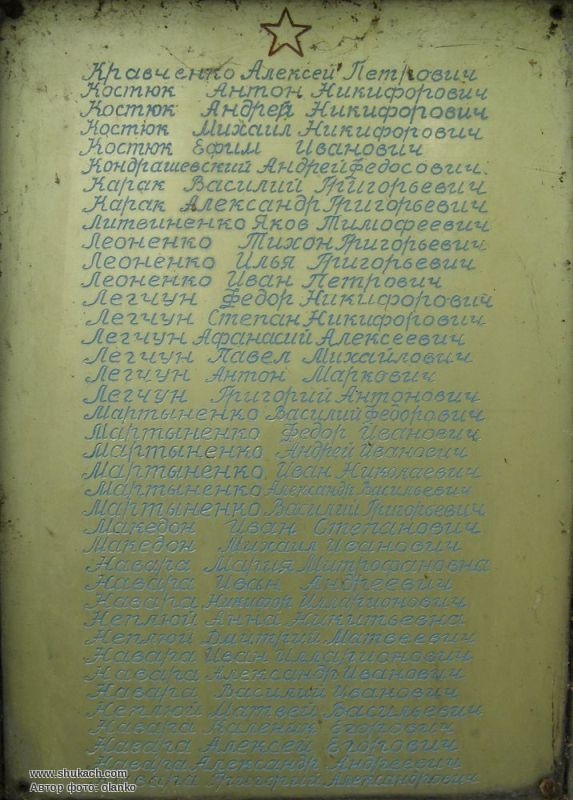 Кравченко Алексей Петрович
Костюк Антон Никифорович
Костюк Андрей Никифорович
Костюк Михаил Никифорович
Костюк Ефим Иванович
Кондрашевский Андрей Федосович.
Карак Василий Григорьевич
Карак Александр Григорьевич
Литвиненко Яков Тимофеевич
Леоненко Тихон Григорьевич
Леоненко Илья Григорьевич
Леоненко Иван Петрович
Легчун Федор Никифорович
Легчун Степан Никифорович
Легчун Афанасий Алексеевич
Легчун Павел Михайлович
Легчун Антон Маркович
Легчун Григорий Антонович
Мартыненко Василий Федорович
Мартыненко Федор Иванович
Мартыненко Андрей Иванович
Мартыненко Иван Николаевич
Мартыненко Александр Васильевич
Мартыненко Василий Григорьевич
Македон Иван Степанович
Македон Михаил Иванович
Навара Мария Митрофановна
Навара Иван Андреевич
Навара Никифор Илларионович
Неплюй Анна Никитьевна
Неплюй Дмитрий Матвеевич
Навара Иван Илларионович
Навара Александр Иванович
Навара Василий Иванович
Неплюй Матвей Васильевич
Навара Каленик Егорович
Навара Алексей Егорович
Навара Александр Андреевич
Навара Григорий Александрович
www.shukach.com
Автор фото: olanko